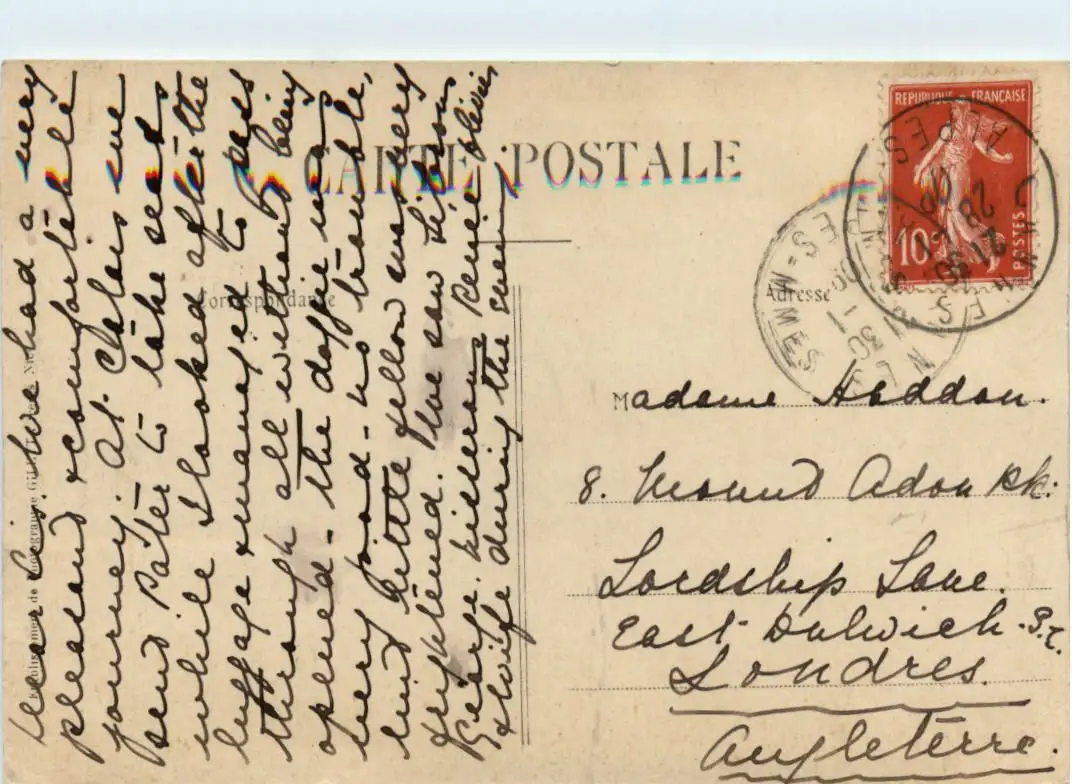 CARTE POSTALE
Correspondance
Adresse
REPUBLIQUE FRANÇAISE
10
POSTES
ALPES
Dear . We had a very
pleasant & comfortable
journey. At Calais we
sent Pater to take seats
while I looked after the
luggage & managed to pass
through all without being
opened - the doggie was
very good - no trouble,
but little fellow was very
frightened. I've saw Simon
George. & Renie
& wife during the even
Madame Haddon.
8. Mount Adon Pk.
Lordship Lane.
East Dulwich. S.E.
Londres.
Angleterre.